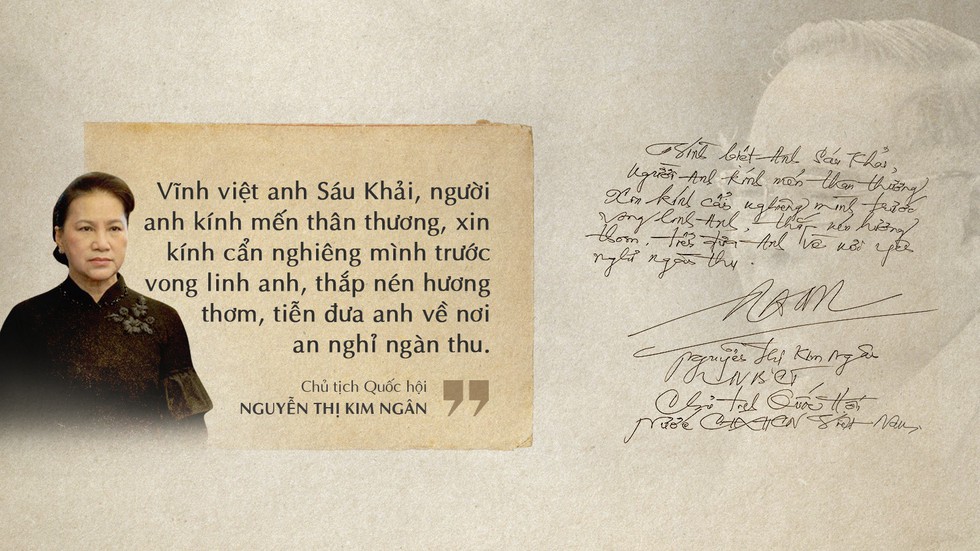 Vĩnh việt anh Sáu Khải, người
anh kính mến thân thương, xin
kính cẩn nghiêng mình trước
vong linh anh, thắp nén hương
thơm, tiễn đưa anh về nơi
an nghỉ ngàn thu.
Chủ tịch Quốc hội
NGUYỄN THỊ KIM NGÂN
Vĩnh biệt Anh Sáu Khải,
người Anh kính mến thân thương
Xin kính cẩn nghiêng mình trước
vong linh Anh, thắp nén hương
thơm, tiễn đưa Anh về nơi yên
nghỉ ngàn thu.
Nguyễn Thị Kim Ngân
UVBCT
Chủ tịch Quốc Hội
nước CHXHCN Việt Nam.